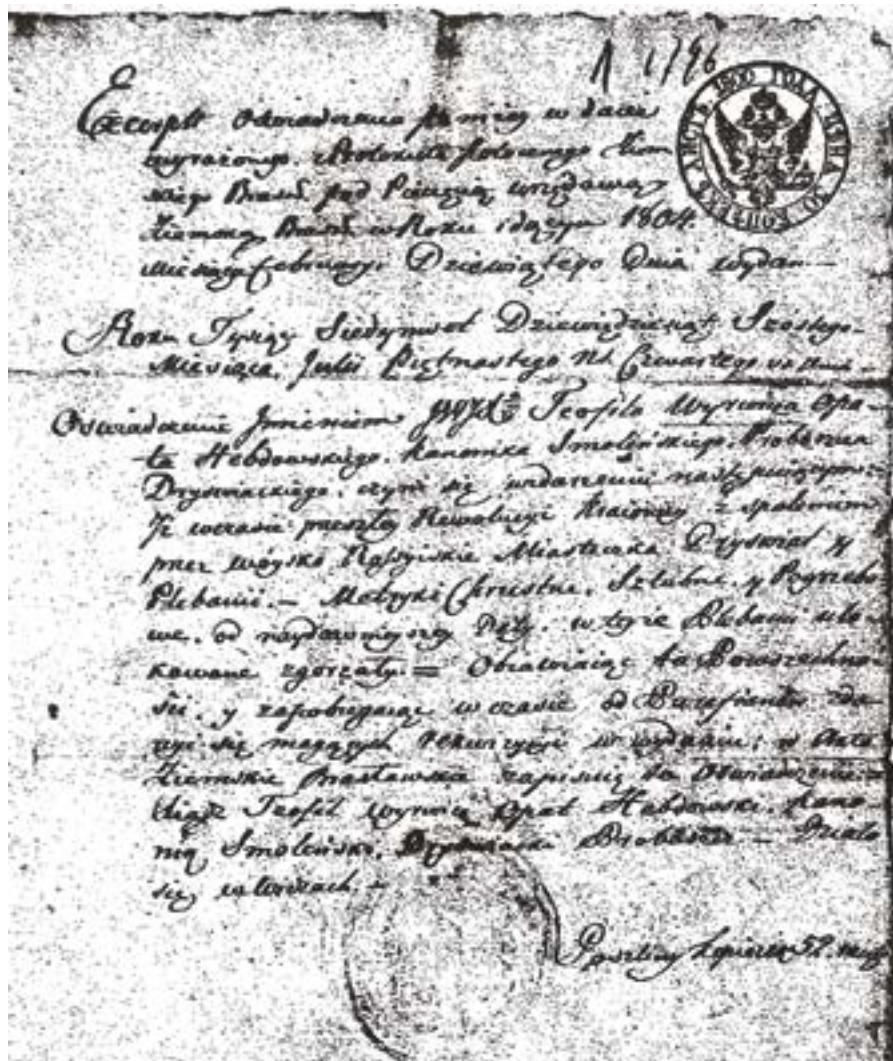 1796
ЛИСТЪ 1800 ГОДА. ЦѢНА 30 КОПѢЕКЪ
Excerpt Oswiadczenia niżey w dacie
wyrażonego, z Protokułu potocznego Ziem
skiego Brasł. pod Pieczęcią urzędową
Ziemską Brasł. w Roku idącym 1804.
Miesiąca Februaryi Dziewiątego Dnia wydan
Roku Tysiąc Siedymset Dziewiędziesiąt Szostego
Miesiąca Julii Piętnastego Czwartego
Oswiadczenie Imieniem Teofila Wyrwicza Opa-
ta Hebdowskiego, Kanonika Smoleńskiego, Proboszcza
Dryswiackiego, czyni się w następuiącym
Iż wczasie przeszłey Rewolucyi Kraiowey z spalenim
przez woysko Rossyiskie Miasteczka Dryswiat y
Plebanii, — Metryki Chrzestne, Szlubne, y Pogrzebo
we, od naydawnieyszey Daty, w teyże Plebanii ulo-
kowane zgorzały. = Obiawiaiąc to Powszechno-
ści, y zapobiegaiąc w czasie od Parafianow zda-
rzyć się mogących w wydaniu; w Akta
Ziemskie Brasławskie zapisuię to Oswiadczenie.
Xiądz Teofil Wyrwicz Opat Hebdowski, Kano-
nik Smoleński, Dryswiacki Proboszcz — Działo
się
Poszliny kopieiek 52.